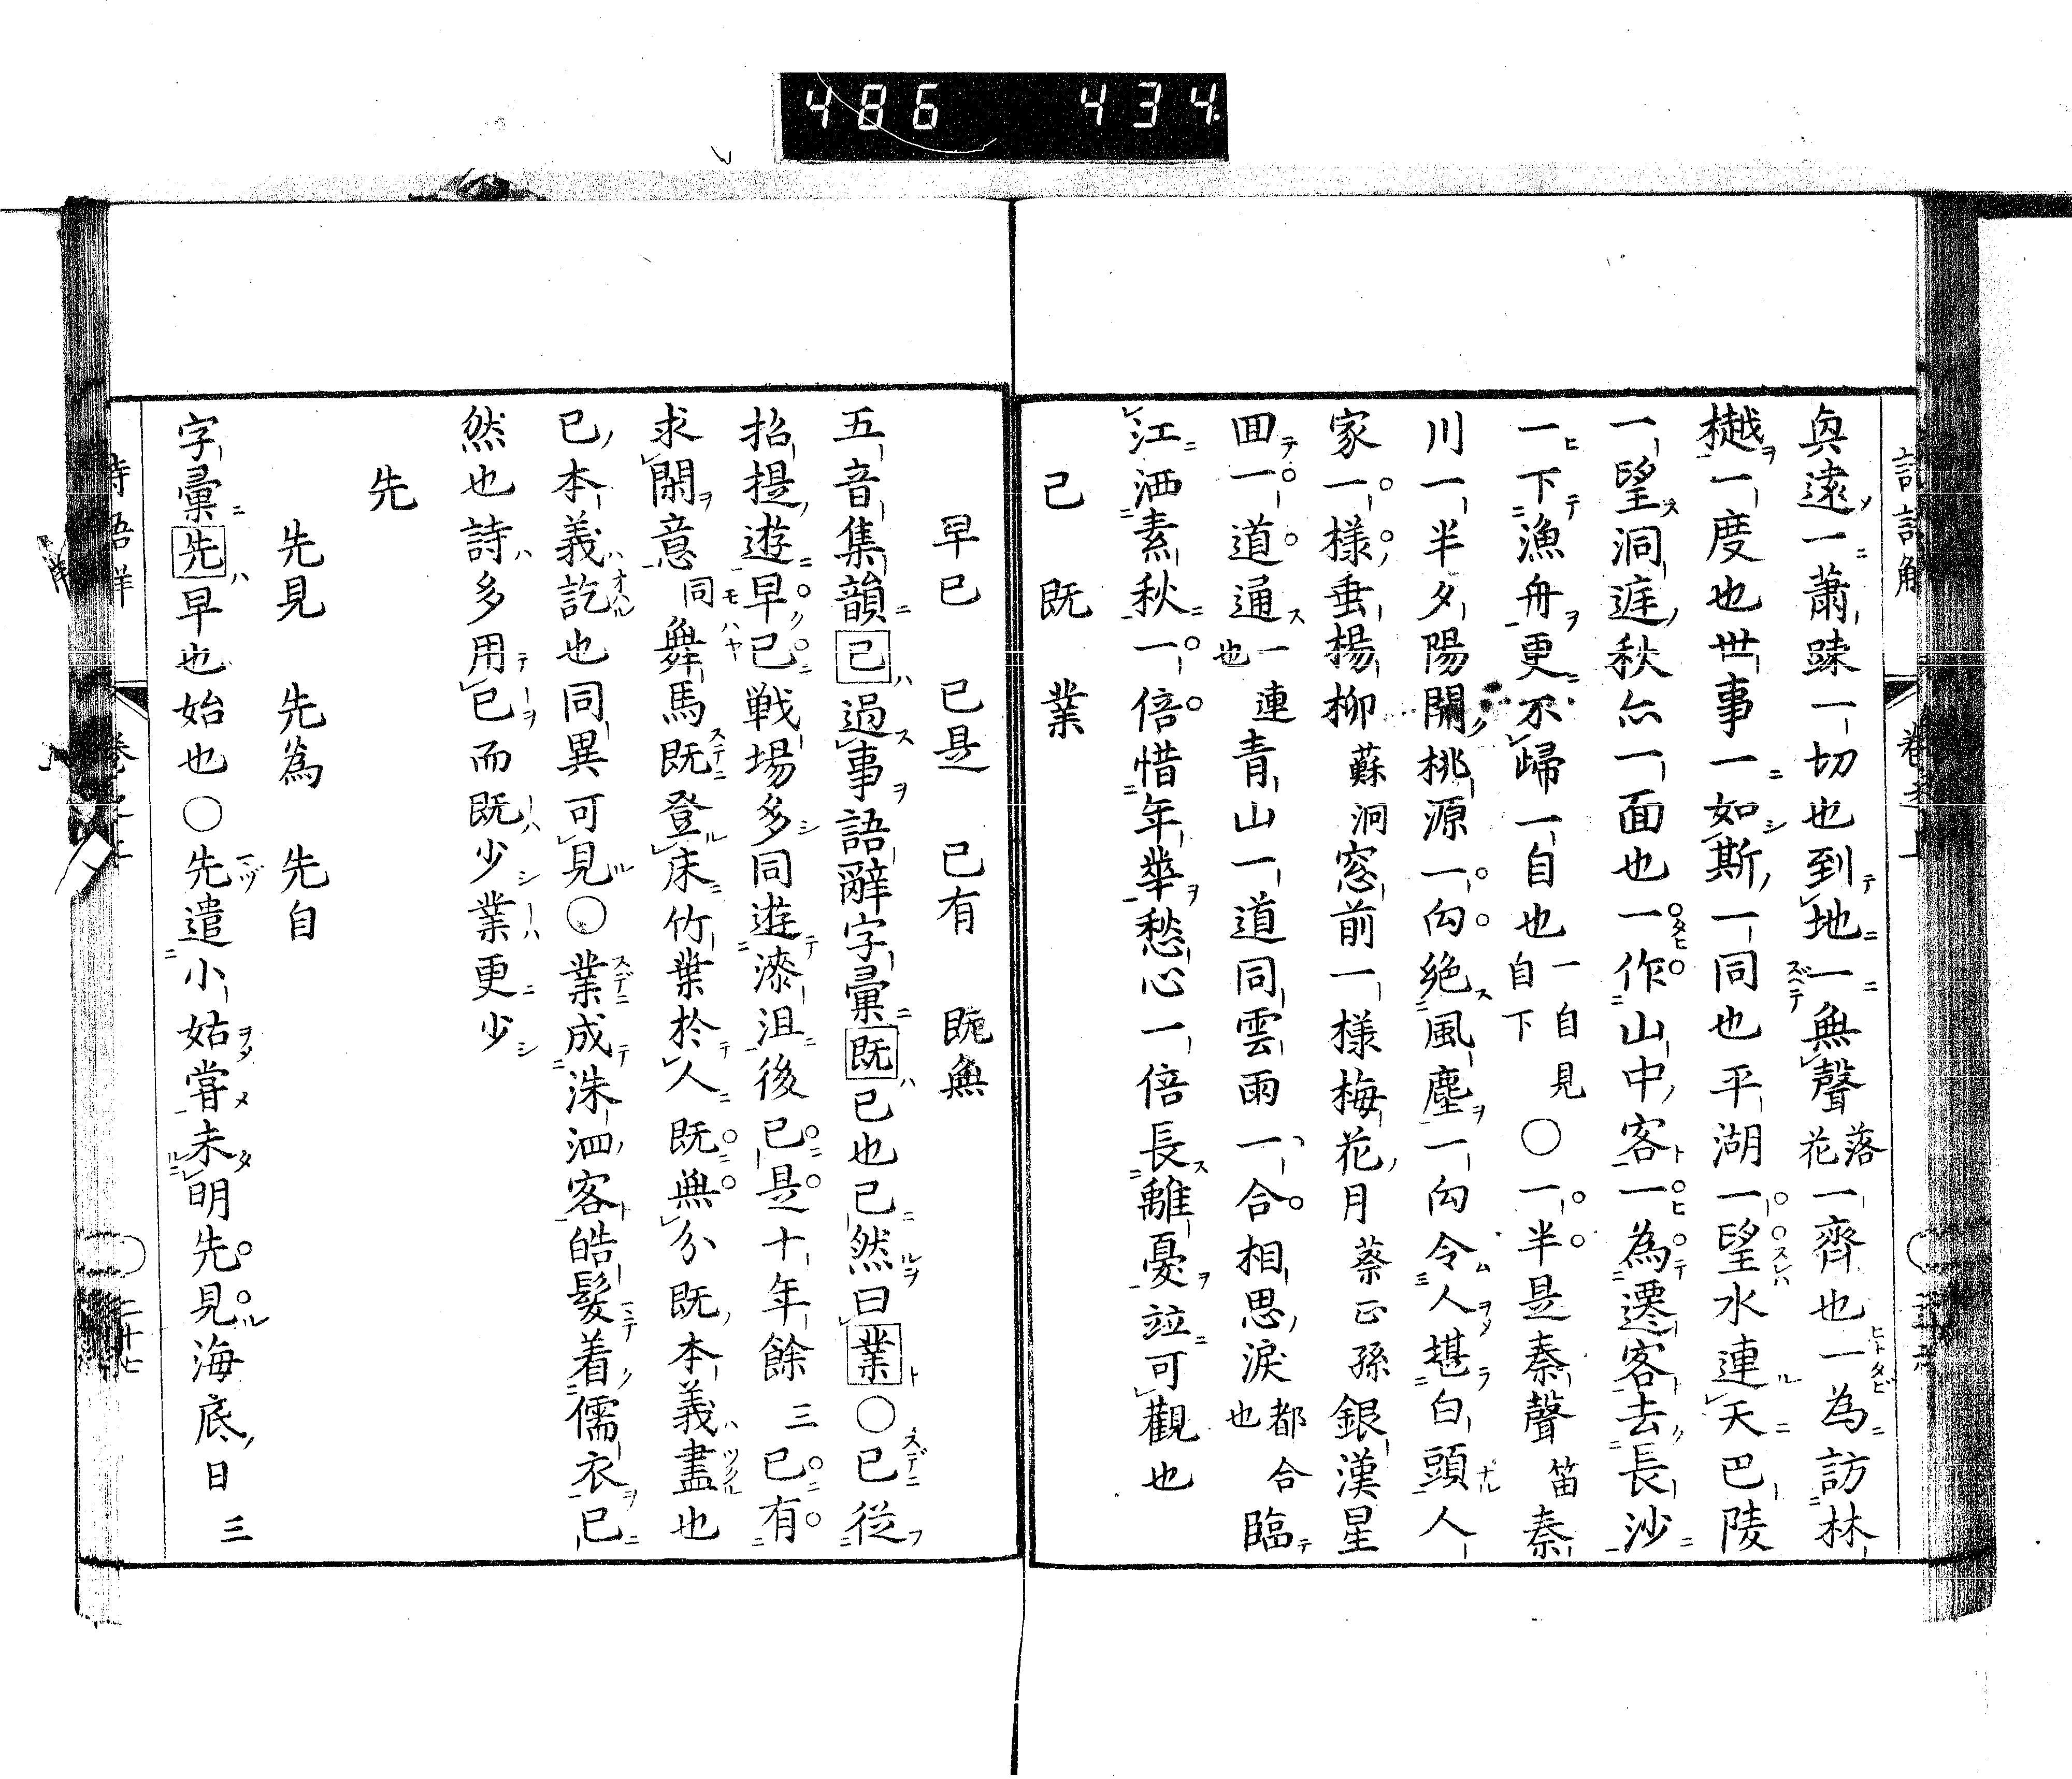 486 434
奐遠一蕭疎一切也到地一無聲落花一齊也一為訪林
樾一度也世事一如斯一同也平湖一望水連天巴陵
一望洞庭秋亦一面也一作山中客一為遷客去長沙
一下漁舟更不歸一自也一自見自下〇一半是秦聲笛秦
川一半夕陽開桃源一向絶風塵一向令人堪白頭人
家一様垂楊柳蘇洞窓前一様梅花月蔡正孫銀漢星
回一道通一連也青山一道同雲雨一合相思涙都合也臨
江洒素秋一倍惜年華愁心一倍長離憂竝可觀也
已 既 業
早已 已是 已有 既無
五音集韻已過事語辭字彙既已也已然曰業〇已從
招提遊早已戦場多同遊漆沮後已是十年餘三已有
求閑意同舞馬既登床竹葉於人既無分既本義盡也
已本義訖也同異可見〇業成洙泗客皓髮着儒衣已
然也詩多用已而既少業更少
先
先見 先為 先自
字彙先早也始也〇先遣小姑嘗未明先見海底日三
二十七